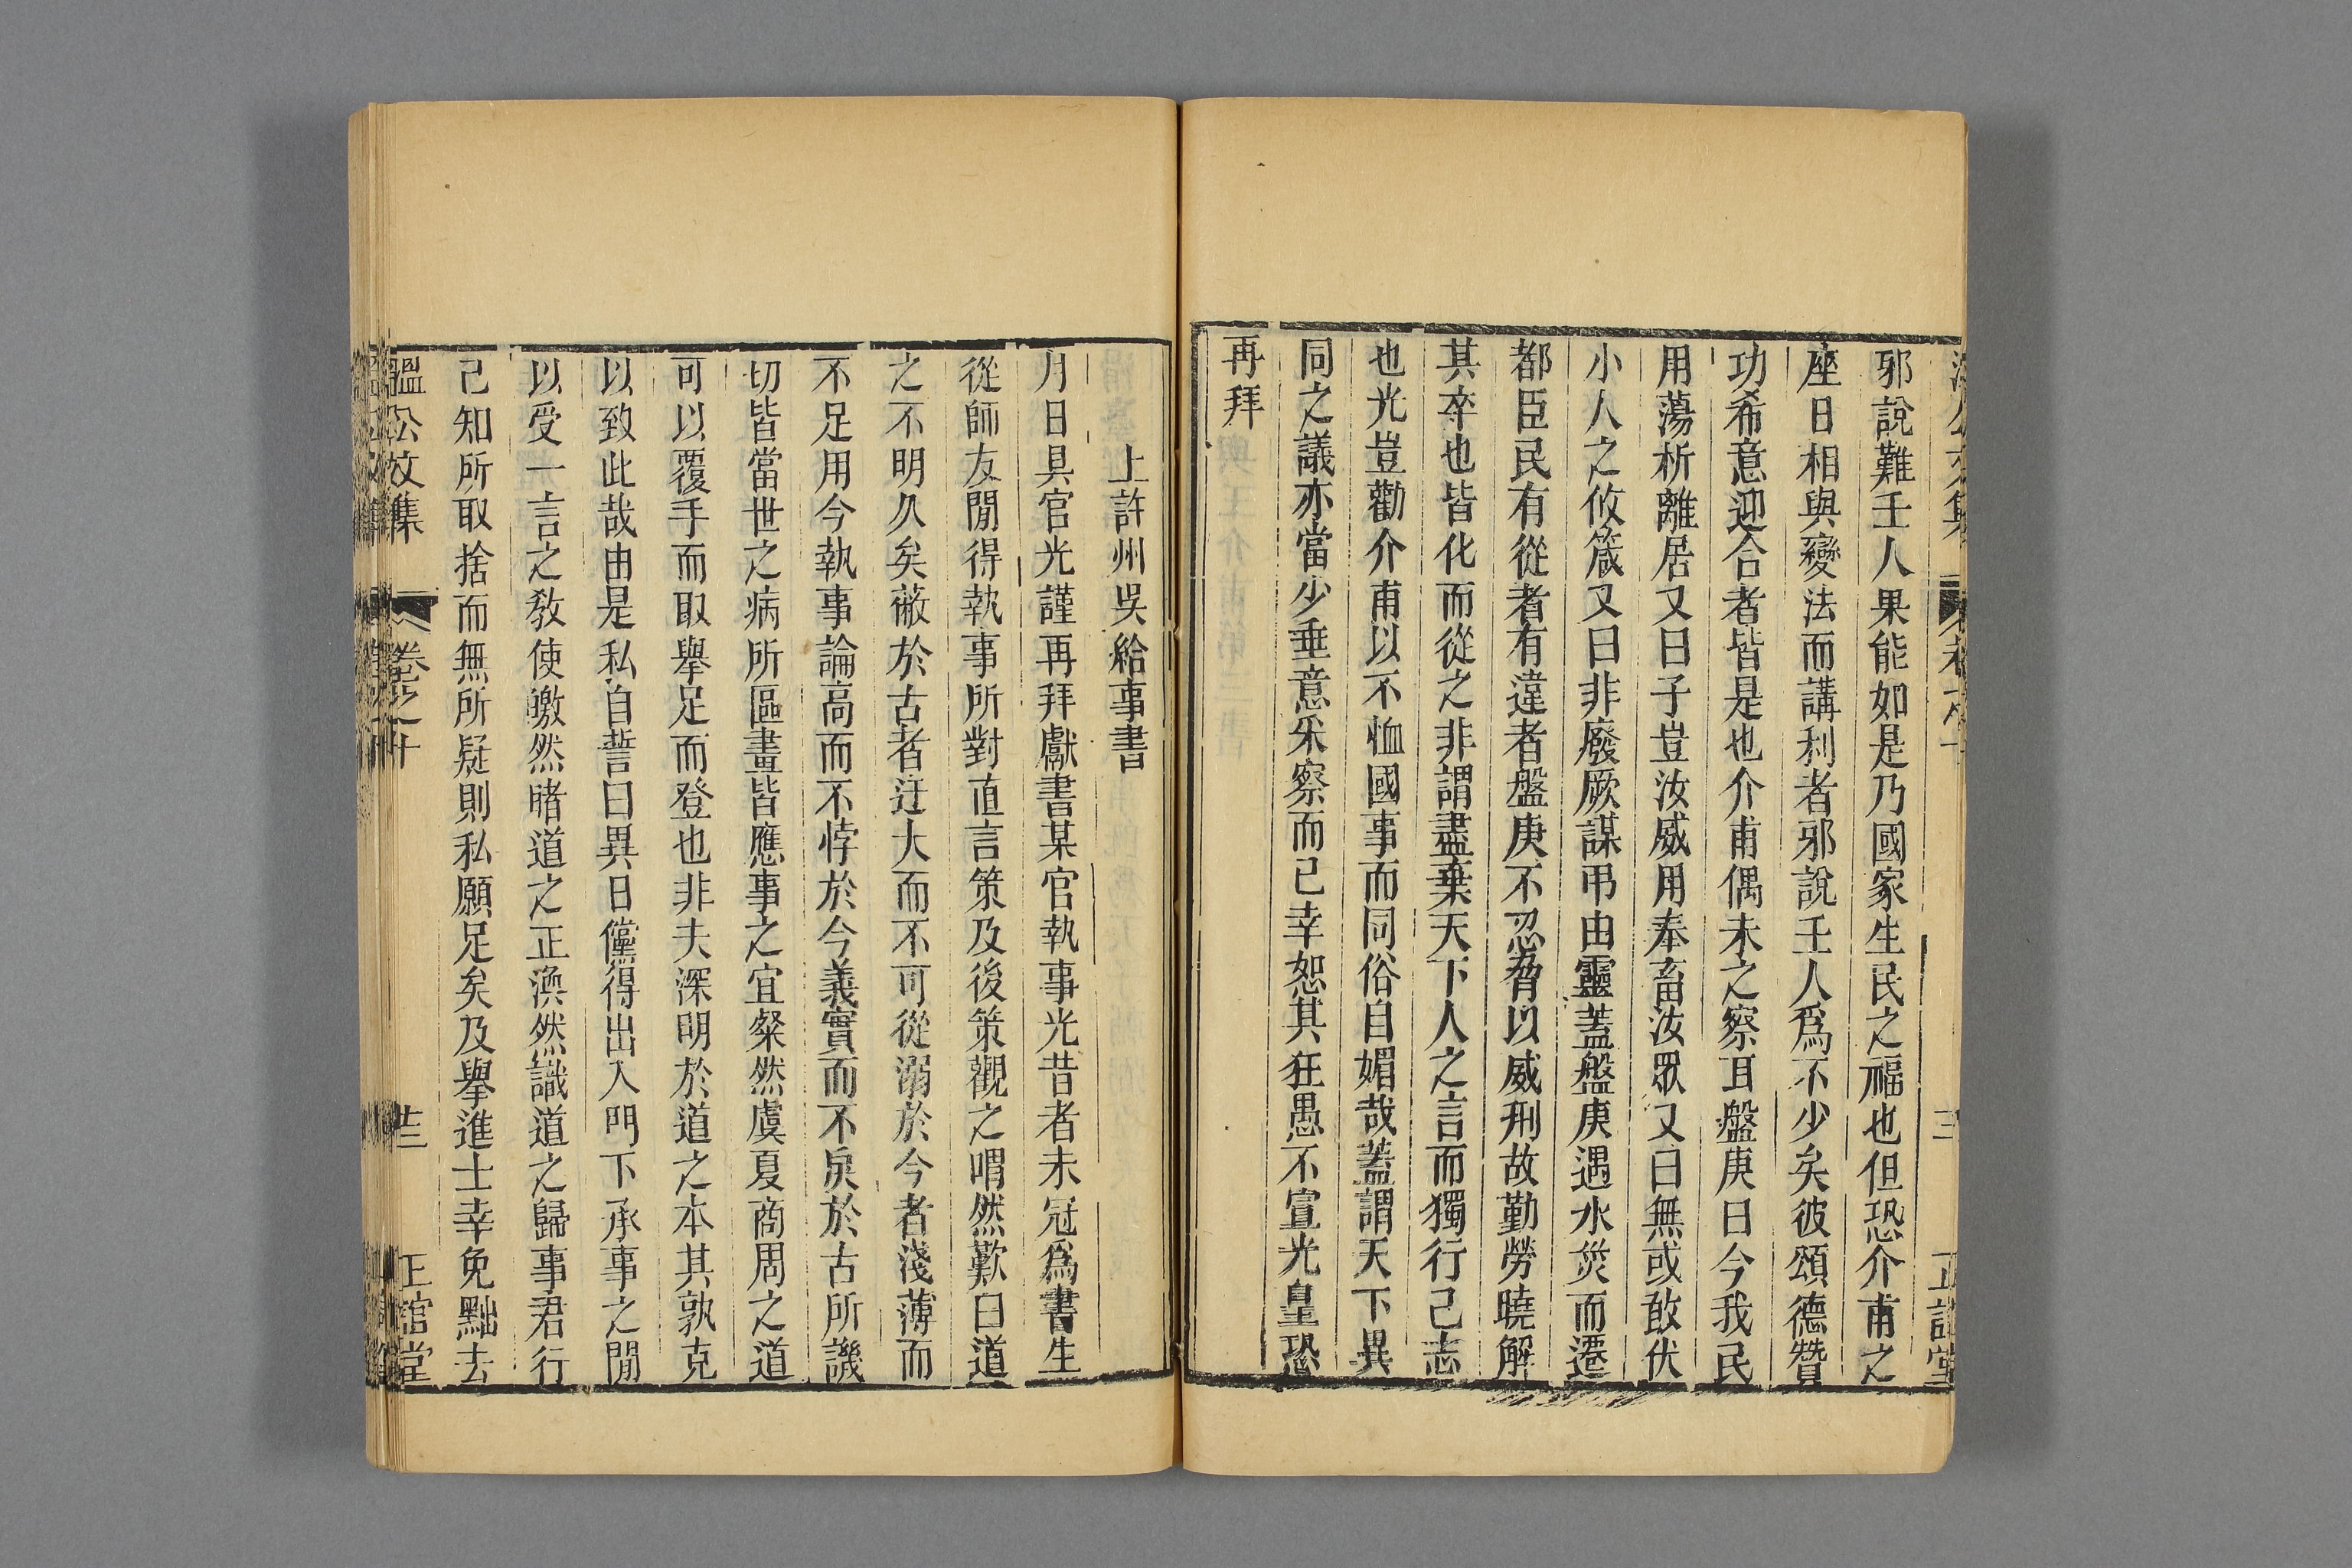 邪說難壬人果能如是乃國家生民之福也但恐介甫之
座日相與變法而講利者邪說壬人爲不少矣彼頌德贊
功希意迎合者皆是也介甫偶未之察耳盤庚曰今我民
用蕩析離居又曰予豈汝威用奉畜汝眾又曰無或敢伏
小人之攸箴又曰非廢厥謀弔由靈蓋盤庚遇水災而遷
都臣民有從者有違者盤庚不忍脅以威刑故勤勞曉解
其卒也皆化而從之非謂盡棄天下人之言而獨行己志
也光豈勸介甫以不恤國事而同俗自媚哉蓋謂天下異
同之議亦當少垂意采察而已幸恕其狂愚不宣光皇恐
再拜
上許州吳給事書
月日具官光謹再拜獻書某官執事光昔者未冠爲書生
從師友閒得執事所對直言策及後策觀之喟然歎曰道
之不明久矣蔽於古者迂大而不可從溺於今者淺薄而
不足用今執事論高而不悖於今義實而不戾於古所譏
切皆當世之病所區畫皆應事之宜粲然虞夏商周之道
可以覆手而取舉足而登也非夫深明於道之本其孰克
以致此哉由是私自誓曰異日儻得出入門下承事之閒
以受一言之敎使皦然睹道之正渙然識道之歸事君行
己知所取捨而無所疑則私願足矣及舉進士幸免黜去
溫公文集 卷之十 廿三 正誼堂